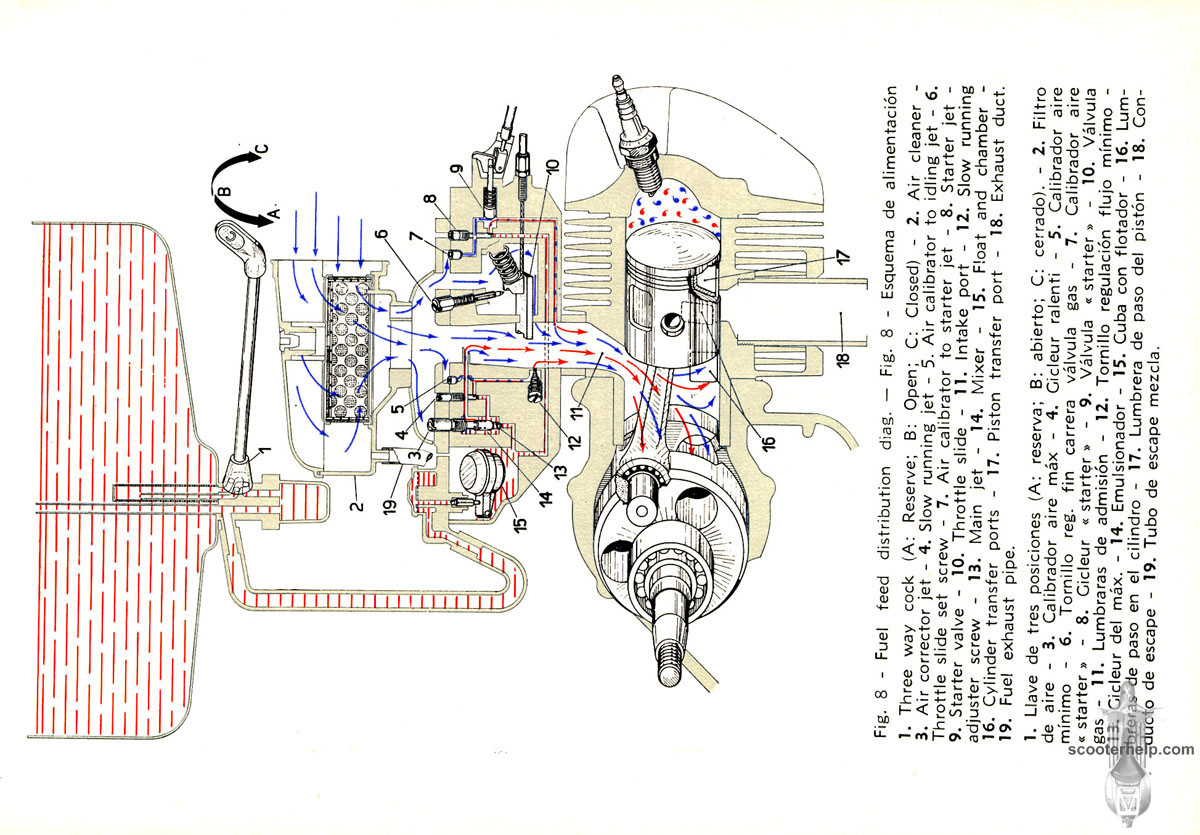 A
B
C
1
2
3
4
5
6
7
8
9
10
11
12
13
14
15
16
17
18
19
Fig. 8 - Fuel feed distribution diag. — Fig. 8 - Esquema de alimentación
1. Three way cock (A: Reserve; B: Open; C: Closed) - 2. Air cleaner -
3. Air corrector jet - 4. Slow running jet - 5. Air calibrator to idling jet - 6.
Throttle slide set screw - 7. Air calibrator to starter jet - 8. Starter jet -
9. Starter valve - 10. Throttle slide - 11. Intake port - 12. Slow running
adjuster screw - 13. Main jet - 14. Mixer - 15. Float and chamber -
16. Cylinder transfer ports - 17. Piston transfer port - 18. Exhaust duct.
19. Fuel exhaust pipe.
1. Llave de tres posiciones (A: reserva; B: abierto; C: cerrado). - 2. Filtro
de aire - 3. Calibrador aire máx - 4. Gicleur ralenti - 5. Calibrador aire
mínimo - 6. Tornillo reg. fin carrera válvula gas - 7. Calibrador aire
« starter » - 8. Gicleur « starter » - 9. Válvula « starter » - 10. Válvula
gas - 11. Lumbraras de admisión - 12. Tornillo regulación flujo mínimo -
13. Gicleur del máx. - 14. Emulsionador - 15. Cuba con flotador - 16. Lum-
breras de paso en el cilindro - 17. Lumbrera de paso del pistón - 18. Con-
ducto de escape - 19. Tubo de escape mezcla.
scooterhelp.com